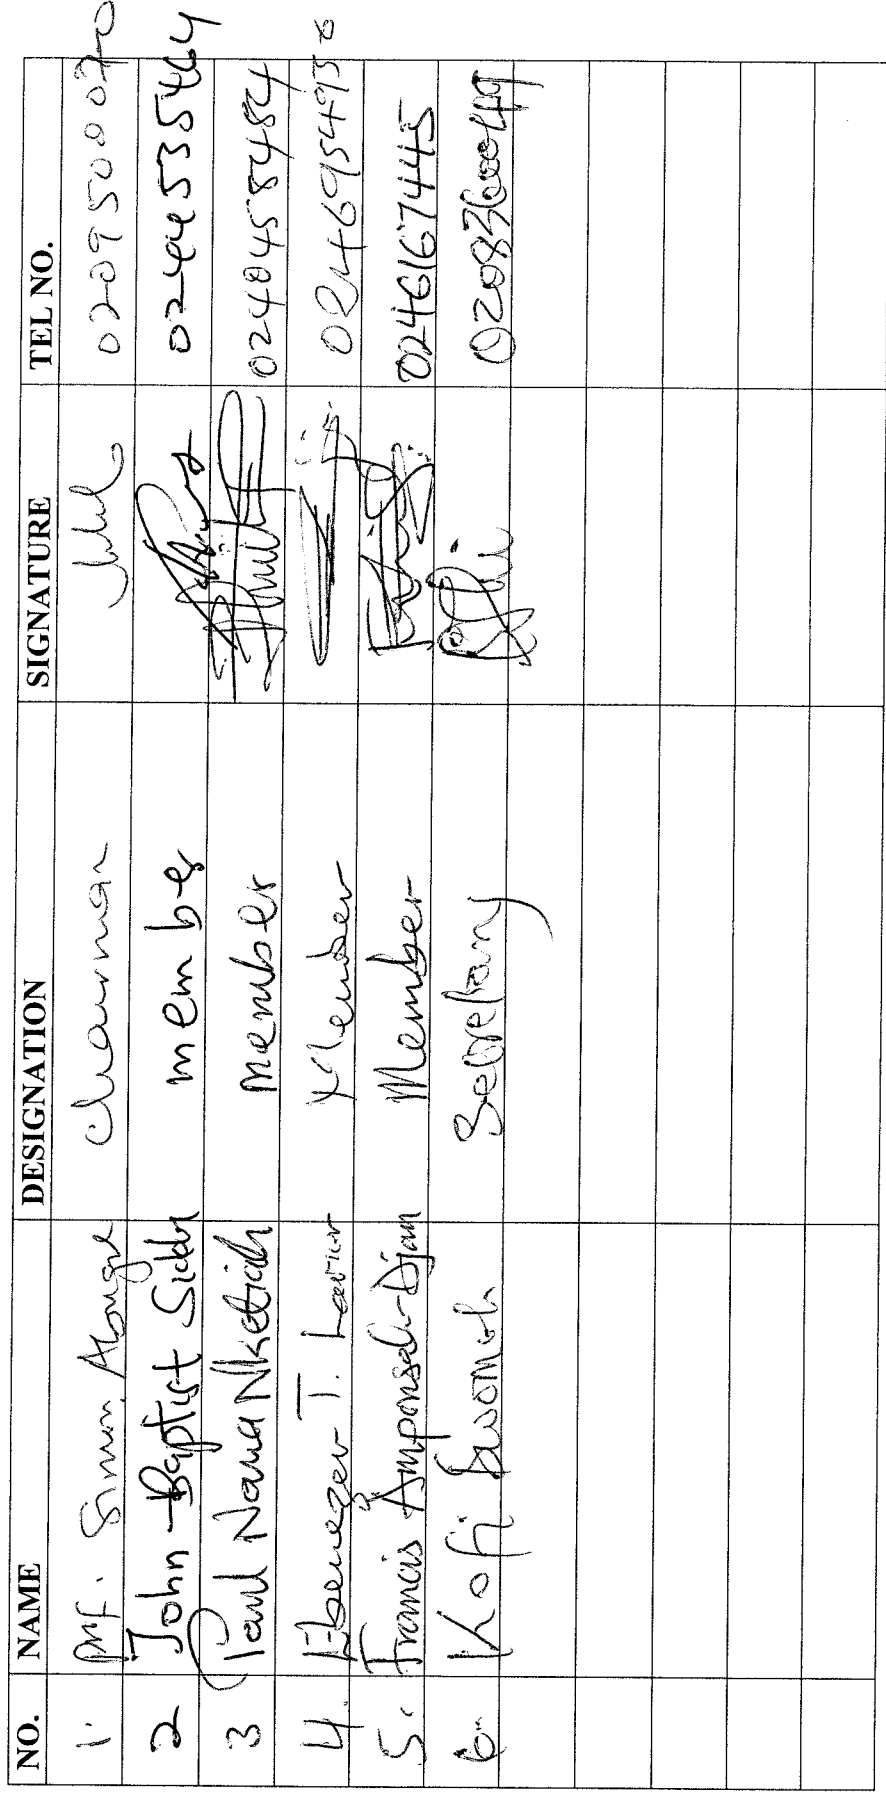 NO. NAME DESIGNATION SIGNATURE TEL NO.
1. Prof. Simon Abongye Chairman 0209500070
2 John-Baptist Siddy member 0244535464
3 Paul Nana Nketiah member 0240458484
4. Ebenezer T. Member
5. Francis Amponsah-Djan Member 0246167445
6. Kofi Secretary